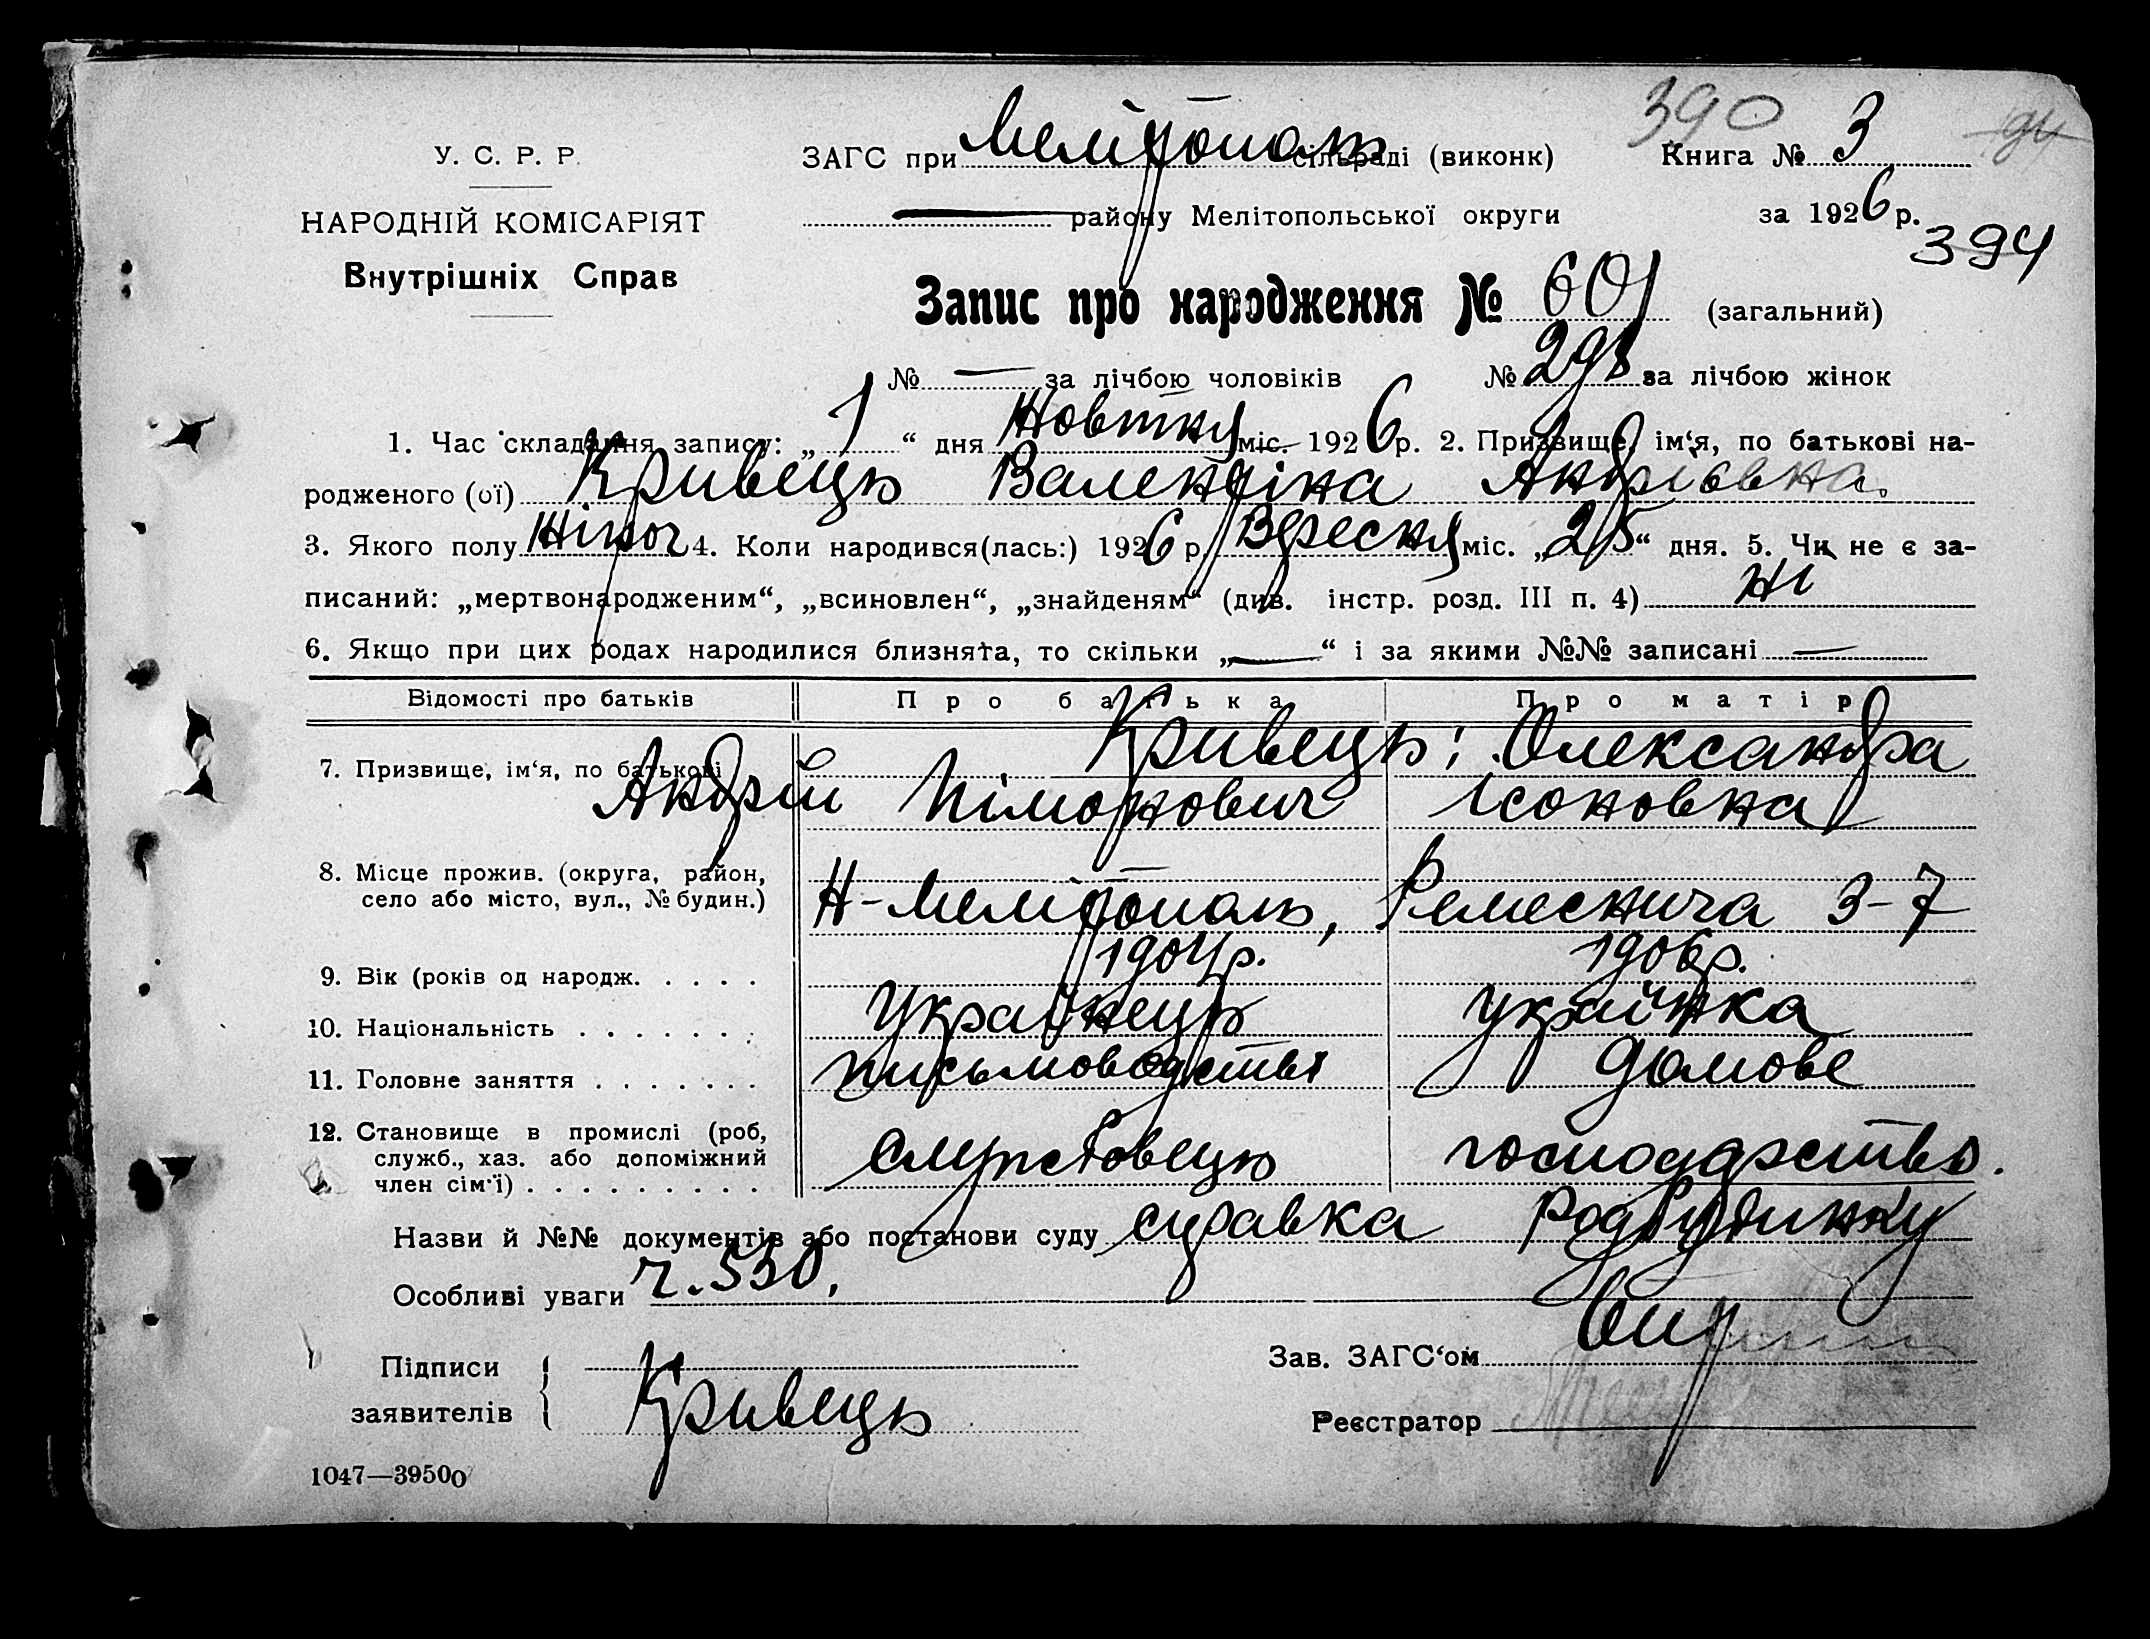 390
У. С. Р. Р. ЗАГС при Мелітополь сільраді (виконк) Книга № 3 94
НАРОДНІЙ КОМІСАРІЯТ — району Мелітопольської округи за 1926 р.
394
Внутрішніх Справ
Запис про народження № 601 (загальний)
№ — за лічбою чоловіків № 298 за лічбою жінок
1. Час складання запису: „ 1 “ дня Жовтня міс. 1926 р. 2. Призвище, ім‘я, по батькові на-
родженого (ої) Кривець Валентіна Андріовна.
3. Якого полу Жіноч 4. Коли народився(лась:) 1926 р. Вересня міс. „25“ дня. 5. Чи не є за-
писаний: „мертвонародженим“, „всиновлен“, „знайденям“ (див. інстр. розд. III п. 4) ні
6. Якщо при цих родах народилися близнята, то скільки „—“ і за якими №№ записані —
Відомості про батьків Про батька Про матір
7. Призвище, ім‘я, по батькові Кривець: Олександра
Андрій Пімонович Ісоновна
8. Місце прожив. (округа, район,
село або місто, вул., № будин.) Н-Мелітополь, 3-7
9. Вік (років од народж. . . . . 1904 р. 1906 р.
10. Національність . . . . . . . Українець Українка
11. Головне заняття . . . . . . . письмоводство домове
12. Становище в промислі (роб,
служб., хаз. або допоміжний господарство.
член сім‘ї) . . . . . . . . .
Назви й №№ документів або постанови суду справка Родбудинку
Особливі уваги ч. 530,
Підписи Зав. ЗАГС‘ом
заявителів Кривець Реєстратор
1047—39500